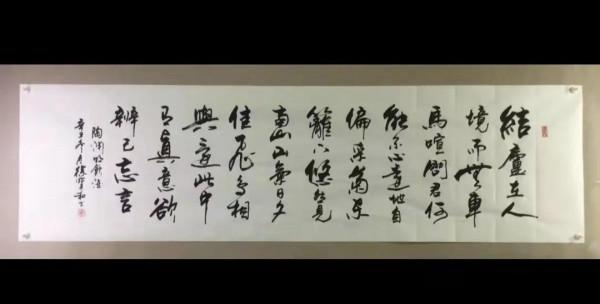 結廬在人
境而無車
馬喧問君何
能尔心遠地自
偏采菊东
籬下悠然見
南山山氣日夕
佳飛鸟相
與還此中
有真意欲
辨已忘言
陶渊明飲酒
辛丑 月